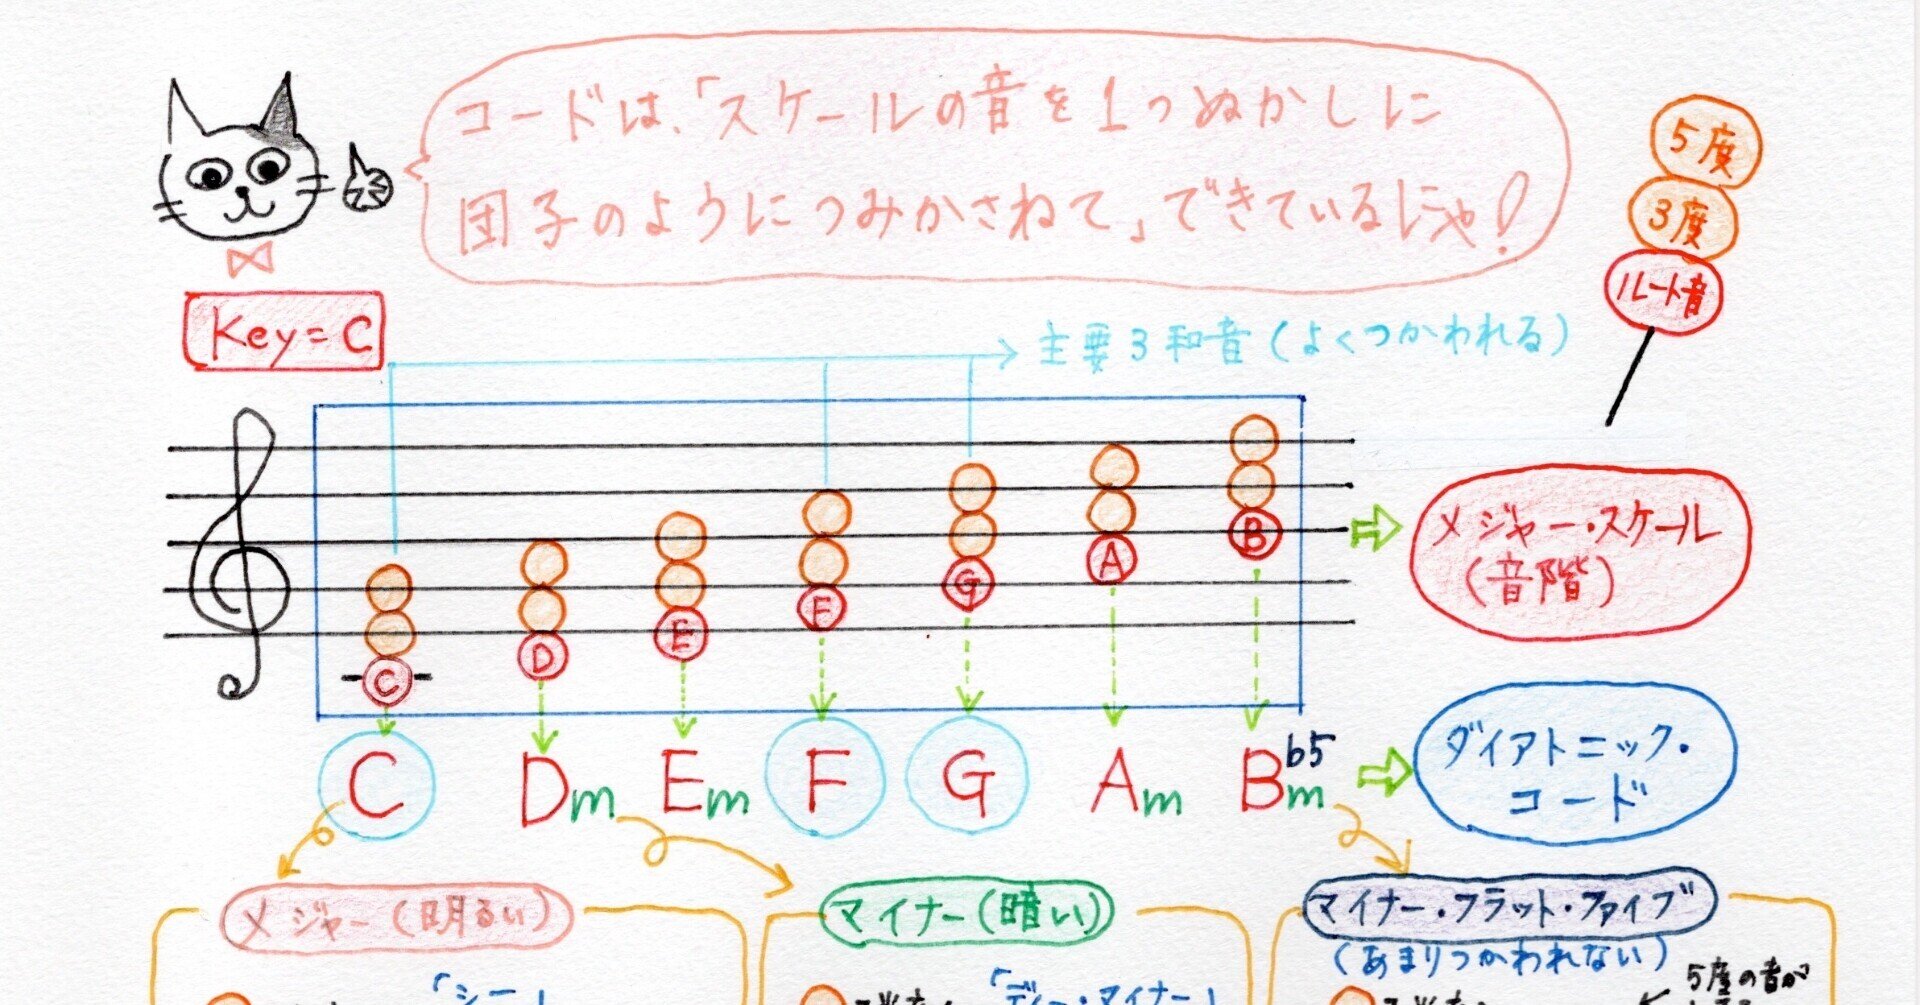 コードは、「スケールの音を1つぬかしに
団子のようにつみかさねて」できているにゃ!
5度
3度
ルート音
Key=C
主要3和音(よくつかわれる)
C
D
E
F
G
A
B
メジャー・スケール
(音階)
C Dm Em F G Am Bm♭5
ダイアトニック・
コード
メジャー(明るい)
マイナー(暗い)
マイナー・フラット・ファイブ
(あまりつかわれない)
5度の音が
「ディー・マイナー」